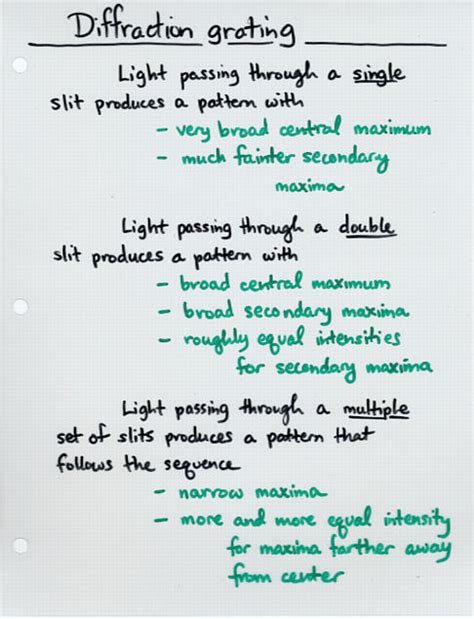 Diffraction grating
Light passing through a single
slit produces a pattern with
- very broad central maximum
- much fainter secondary
maxima
Light passing through a double
slit produces a pattern with
- broad central maximum
- broad secondary maxima
- roughly equal intensities
for secondary maxima
Light passing through a multiple
set of slits produces a pattern that
follows the sequence
- narrow maxima
- more and more equal intensity
for maxima farther away
from center